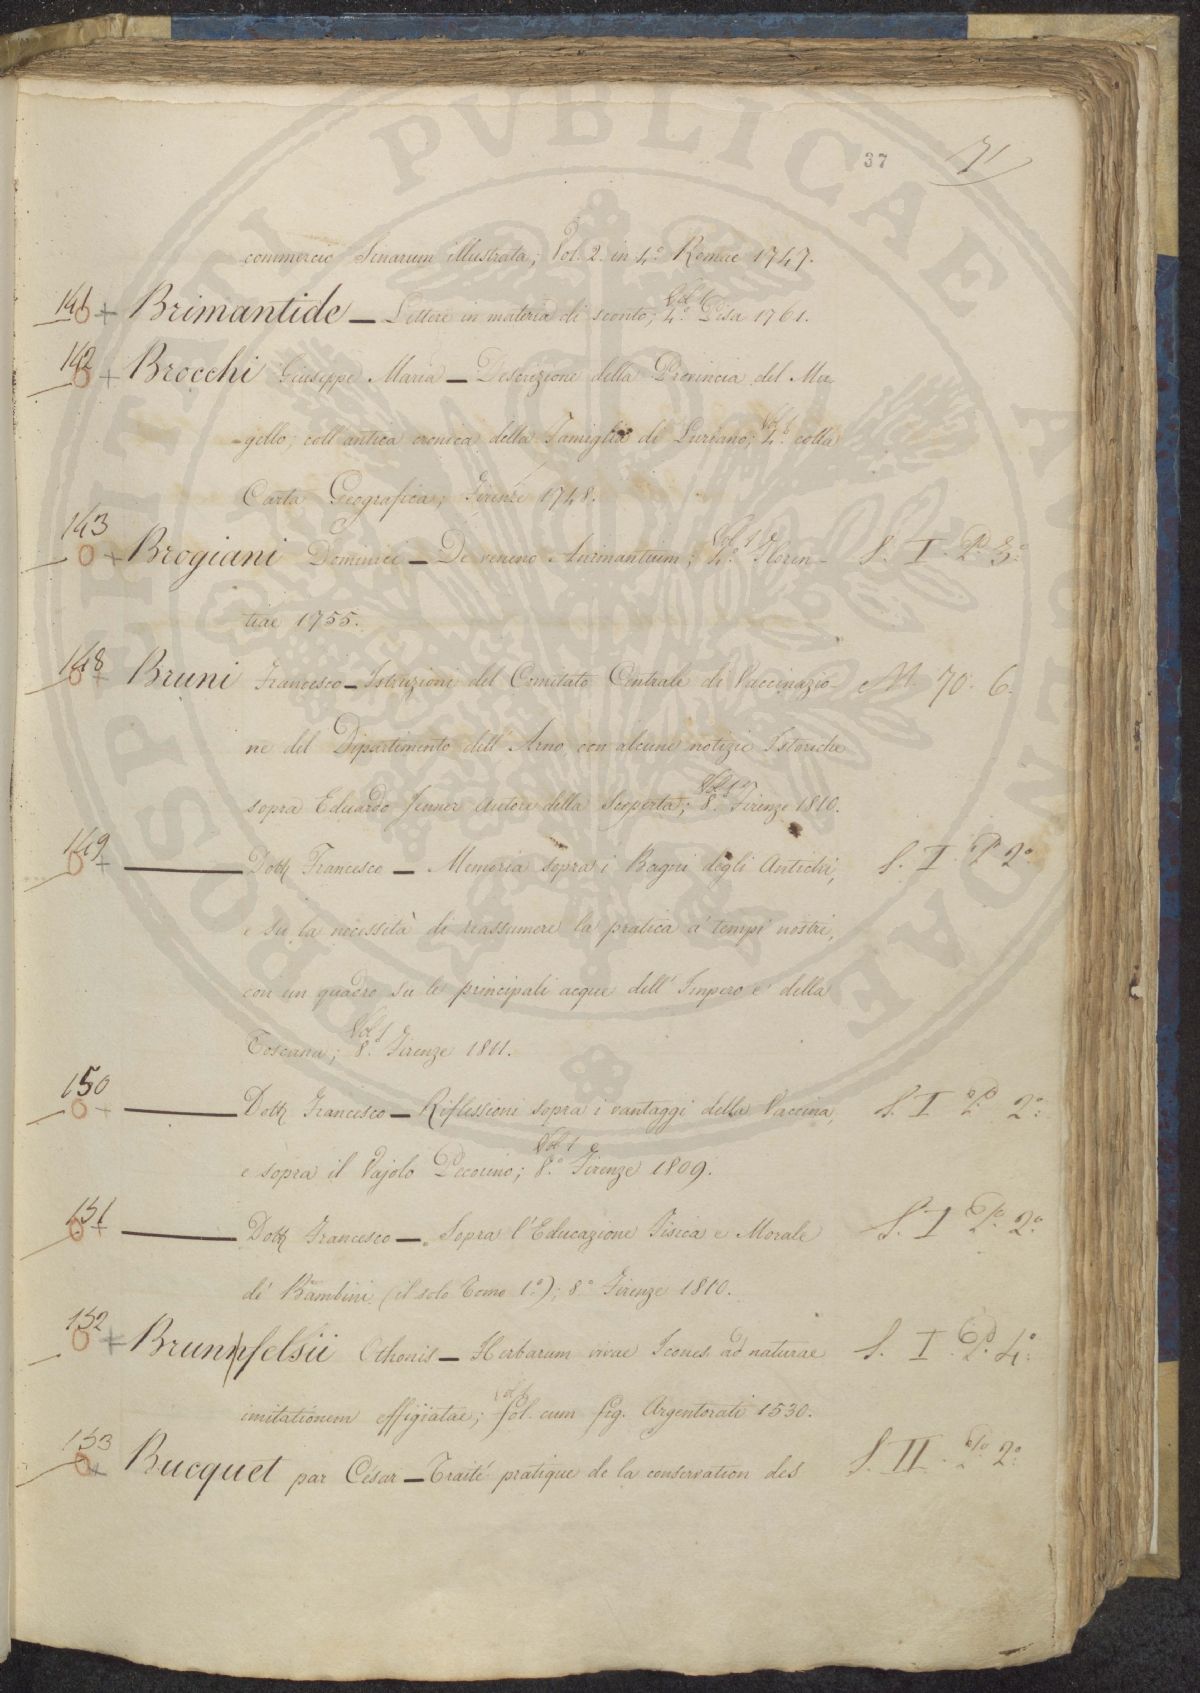 37 71
commercio Sinarum illustrata; Vol. 2. in 4.° Romae 1747.
141 o + Brimantide — Lettere in materia di sconto; Vol 1 4.° Pisa 1761.
142 o + Brocchi Giuseppe Maria — Descrizione della Provincia del Mu-
-gello; coll'antica cronica della Famiglia di Lutiano; Vol 1 4.° colla
Carta Geografica; Firenze 1748.
143 o + Brogiani Dominici — De veneno Animantium; Vol 1 4.° Floren- S. I. P. 3.°
tiae 1755.
148 o + Bruni Francesco — Istruzioni del Comitato Centrale di Vaccinazio- M. 70. 6.
ne del Dipartimento dell'Arno, con alcune notizie Istoriche
sopra Eduardo Jenner Autore della Scoperta; Vol 1 8.° Firenze 1810.
149 o + —— Dott Francesco — Memoria sopra i Bagni degli Antichi, S. I. P. 2.°
e su la necessità di reassumere la pratica a' tempi nostri,
con un quadro su le principali acque dell'Impero e della
Toscana; Vol 1 8.° Firenze 1811.
150 o + —— Dott Francesco — Riflessioni sopra i vantaggi della Vaccina, S. I. P. 2.°
e sopra il Vajolo Pecorino; Vol 1 8.° Firenze 1809.
151 o + —— Dott Francesco — Sopra l'Educazione Fisica e Morale S. I. P. 2.°
di Bambini (il solo Tomo 1.°); 8.° Firenze 1810.
152 o + Brunnfelsii Othonis — Herbarum vivae Icones ad naturae S. I. P. 4.°
imitationem effigiatae; vol 1 fol. cum fig. Argentorati 1530.
153 o + Bucquet par César — Traité pratique de la conservation des S. II. P. 2.°
PROSPERITATI PVBLICAE AVGENDAE